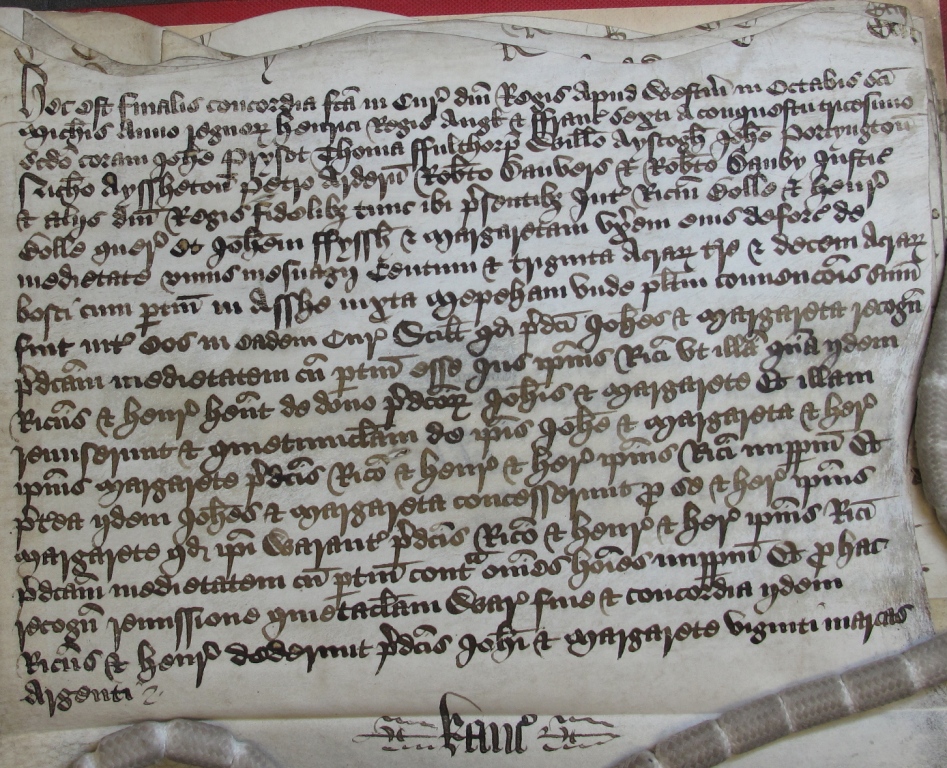 Hec est finalis concordia fc̄a in Cur' dn̄i Regis Apud Westm̄ in Octabis sc̄i
Mich̄is Anno regnor' Henrici Regis Angl' & ffranc' sexti a conquestu tricesimo
sc̄do coram Joh̄e Prysot Thoma ffulthorp Will̄o Ayscogh Joh̄e Portyngton̄
Nich̄o Ayssheton̄ Petro Ardern̄ Rob̄to Danvers & Rob̄to Danby Justic'
& alijs dn̄i Regis fidelib; tunc ibi p̄sentib; Int' Ric̄m Colle & Henr'
Colle quer' Et Joh̄em ffyssh & Margaretam vx̄em eius deforc' de
medietate vnius mesuagij Centum & triginta Acrar' t̄re & decem Acrar'
bosci cum p̄tin̄ in Asshe iuxta Mepeham vnde pl̄itm conuenc̄ois sum̄
fuit int' eos in eadem Cur' Scil̄t qd̄ p̄dc̄i Joh̄es & Margareta recogn̄
p̄dc̄am medietatem cū p̄tin̄ esse Jus ip̄ius Ric̄i vt illā quā ijdem
Ric̄us & Henr' hen̄t de dono p̄dc̄or' Joh̄is & Margarete Et illam
remiserunt & quietumclam̄ de ip̄is Joh̄e & Margareta & her'
ip̄ius Margarete p̄dc̄is Ric̄o & Henr' & her' ip̄ius Ric̄i imp̄pm̄ Et
p̄tea ijdem Joh̄es & Margareta concesserunt p se & her' ip̄ius
Margarete qd̄ ip̄i Warant' p̄dc̄is Ric̄o & Henr' & her' ip̄ius Ric̄i
p̄dc̄am medietatem cū p̄tin̄ contᵃ om̄es hōies imp̄pm̄ Et p hac
recogn̄ remissione quietaclam̄ War' fine & concordia ijdem
Ric̄us & Henr' dederunt p̄dc̄is Joh̄i & Margarete viginti marcas
Argenti
Kanc'